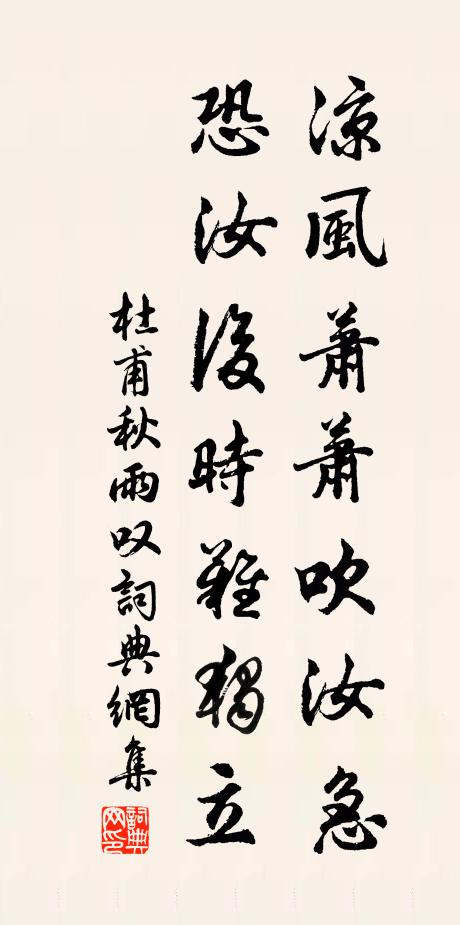 涼風蕭蕭吹汝急
恐汝後時難獨立
杜甫秋雨叹詞典網集
詞典網印